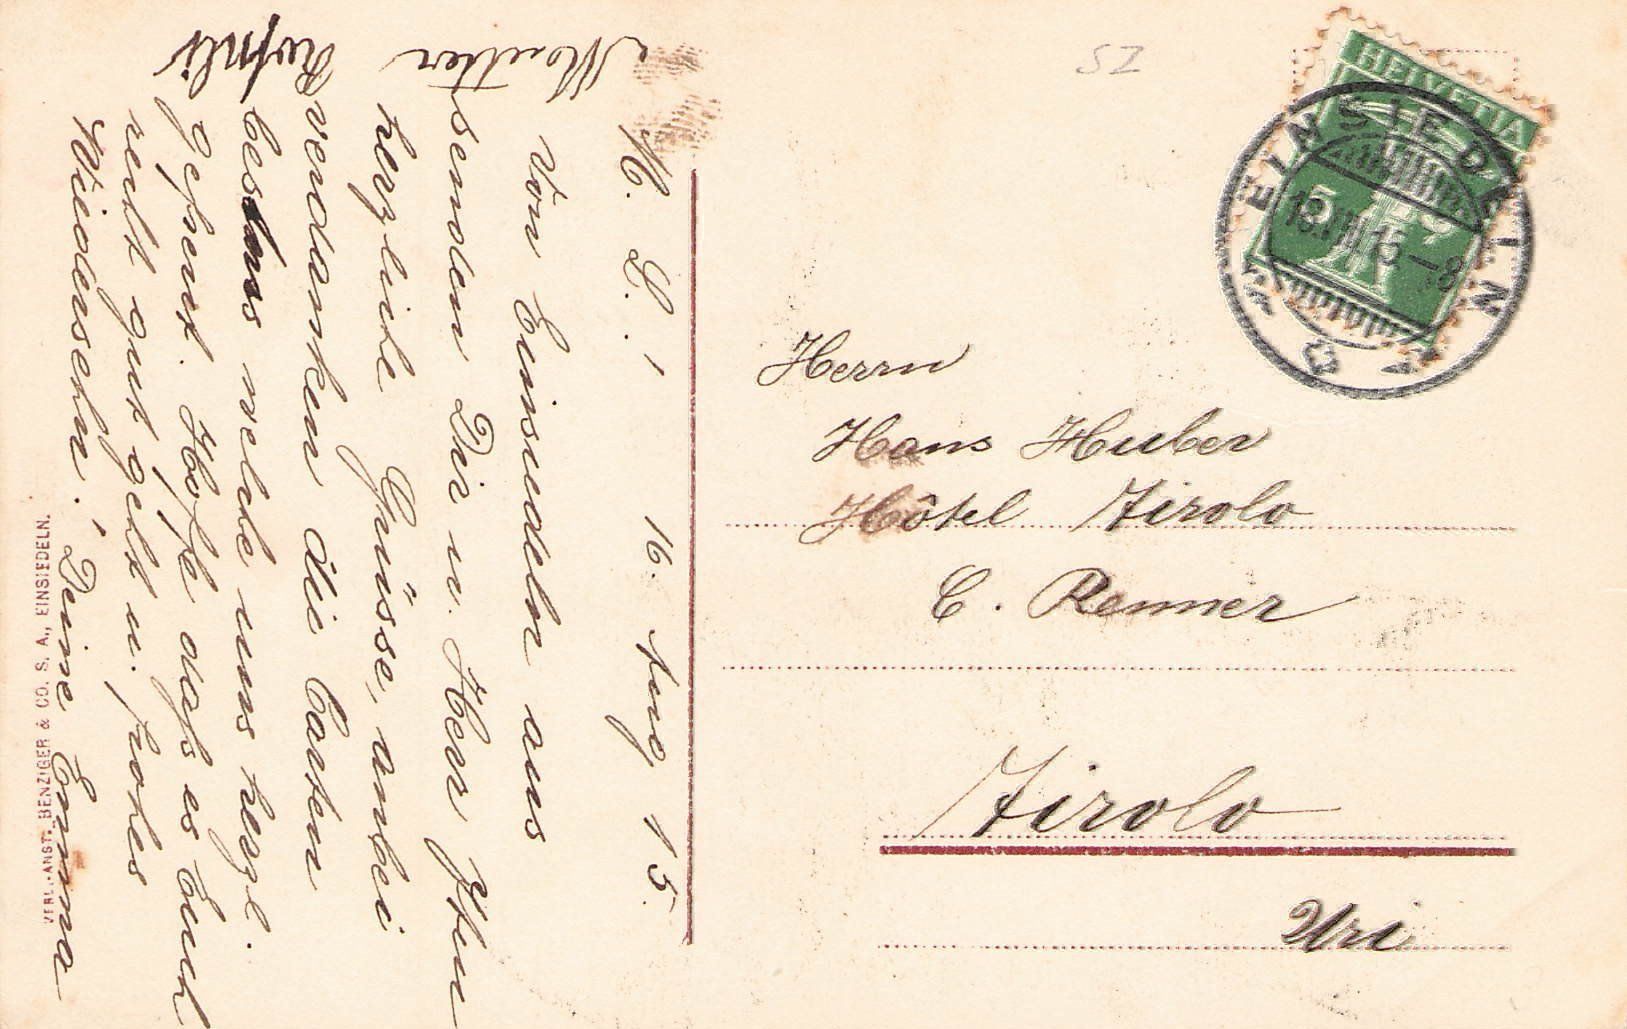 M. L.! 16. Aug 15.
Von Einsiedeln aus
senden Dir u. Herr Iten
herzliche Grüsse, anbei
verdanken die Carten
bestens welche uns herzl.
gefreut. Hoffe dass es Euch
recht gut geht u. frohes
Wiedersehn! Deine Emma
Moutter
VERL.-ANST. BENZIGER & CO. S. A., EINSIEDELN.
SZ
HELVETIA
5
EINSIEDELN
18.VIII.15-8
Herrn
Hans Huber
Hôtel Airolo
C. Renner
Airolo
Uri